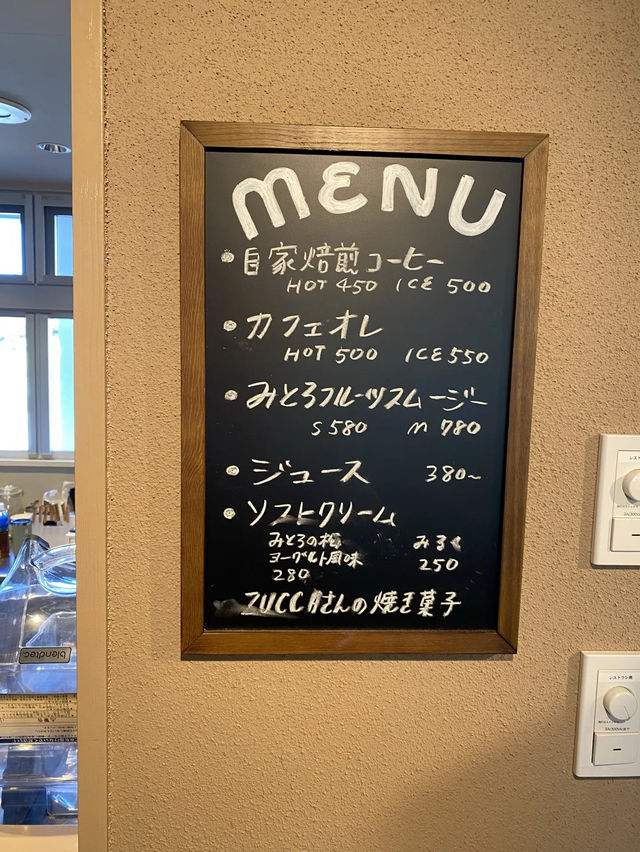 MENU
・自家焙煎コーヒー
HOT 450 ICE 500
・カフェオレ
HOT 500 ICE 550
・みとろフルーツスムージー
S 580 M 780
・ジュース 380~
・ソフトクリーム
みとろの杜 みるく
ヨーグルト風味 250
280
ZUCCAさんの焼き菓子
blendtec
レストラン
レストラン席